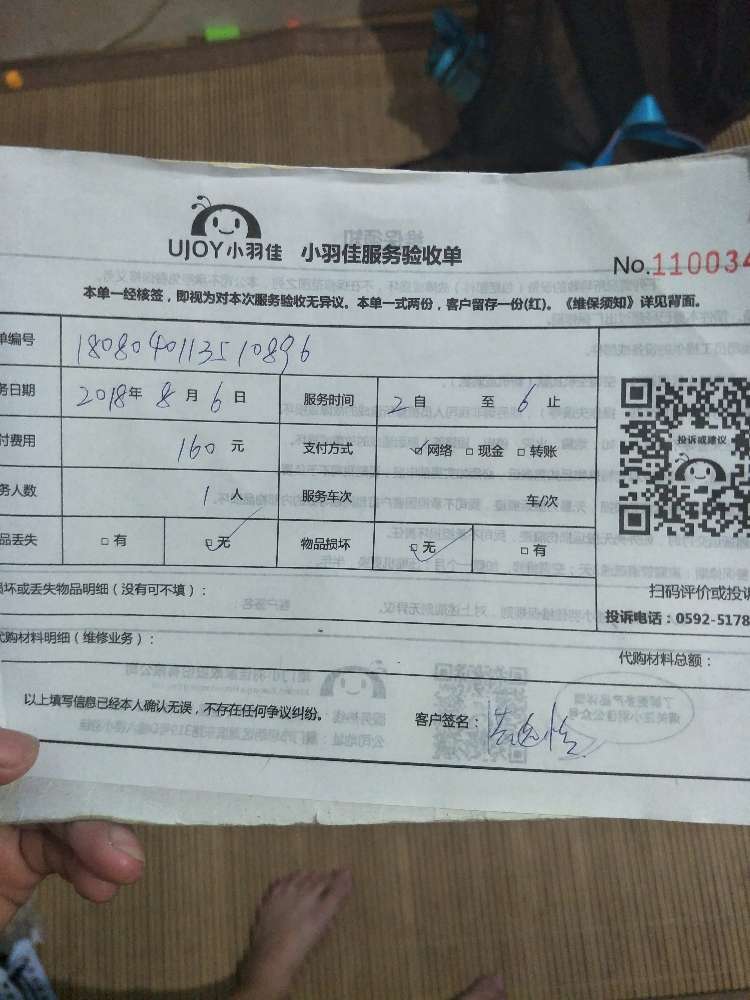 UJOY小羽佳 小羽佳服务验收单
No.110034
本单一经核签，即视为对本次服务验收无异议。本单一式两份，客户留存一份(红)。《维保须知》详见背面。
单编号 1808040113510896
务日期 2018年 8月 6日 服务时间 2自 至 6止
付费用 160元 支付方式 ☑网络 □现金 □转账
务人数 1人 服务车次 车/次
品丢失 □有 ☑无 物品损坏 ☑无 □有
投诉或建议
扫码评价或投诉
投诉电话：0592-5178
损坏或丢失物品明细（没有可不填）：
代购材料明细（维修业务）：
代购材料总额：
以上填写信息已经本人确认无误，不存在任何争议纠纷。
客户签名：